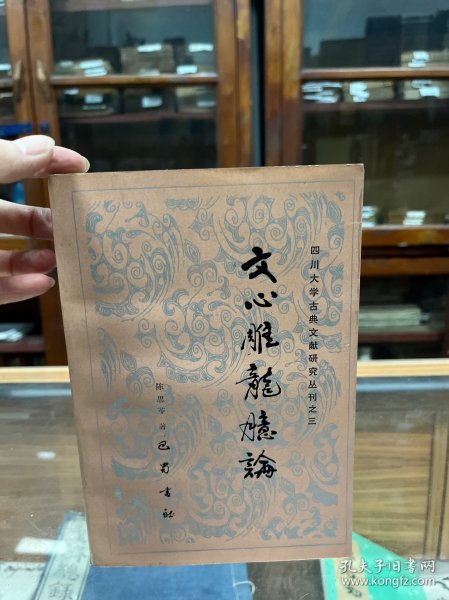 四川大学古典文献研究丛刊之三
文心雕龍臆論
陈思苓 著
巴蜀書社
孔夫子旧书网
www.kongfz.com